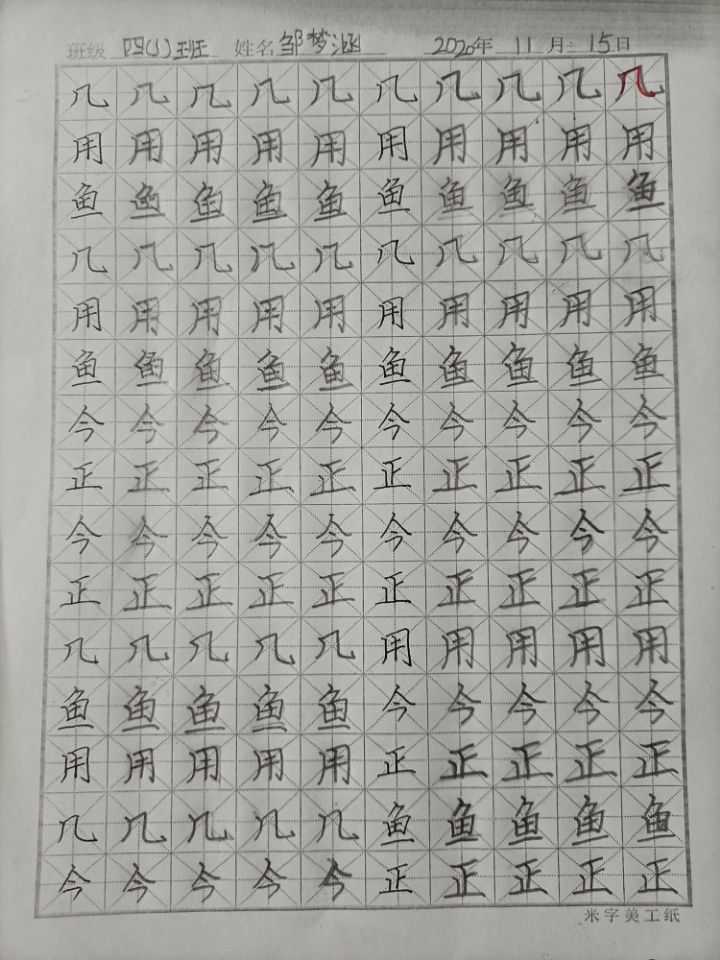 班级 四(1)班 姓名 邹梦涵 2020年 11月 15日
几几几几几几几几几几
用用用用用用用用用用
鱼鱼鱼鱼鱼鱼鱼鱼鱼鱼
几几几几几几几几几几
用用用用用用用用用用
鱼鱼鱼鱼鱼鱼鱼鱼鱼鱼
今今今今今今今今今今
正正正正正正正正正正
今今今今今今今今今今
正正正正正正正正正正
几几几几几用用用用用
鱼鱼鱼鱼鱼今今今今今
用用用用用正正正正正
几几几几几鱼鱼鱼鱼鱼
今今今今今正正正正正
米字美工纸